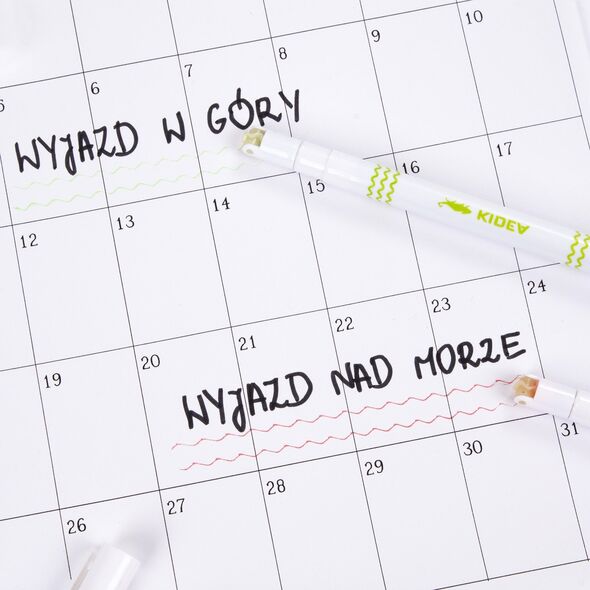 5 6 7 8 9 10
WYJAZD W GÓRY
12 13 14 15 16 17
KIDEA
19 20 21 22 23 24
WYJAZD NAD MORZE
26 27 28 29 30 31